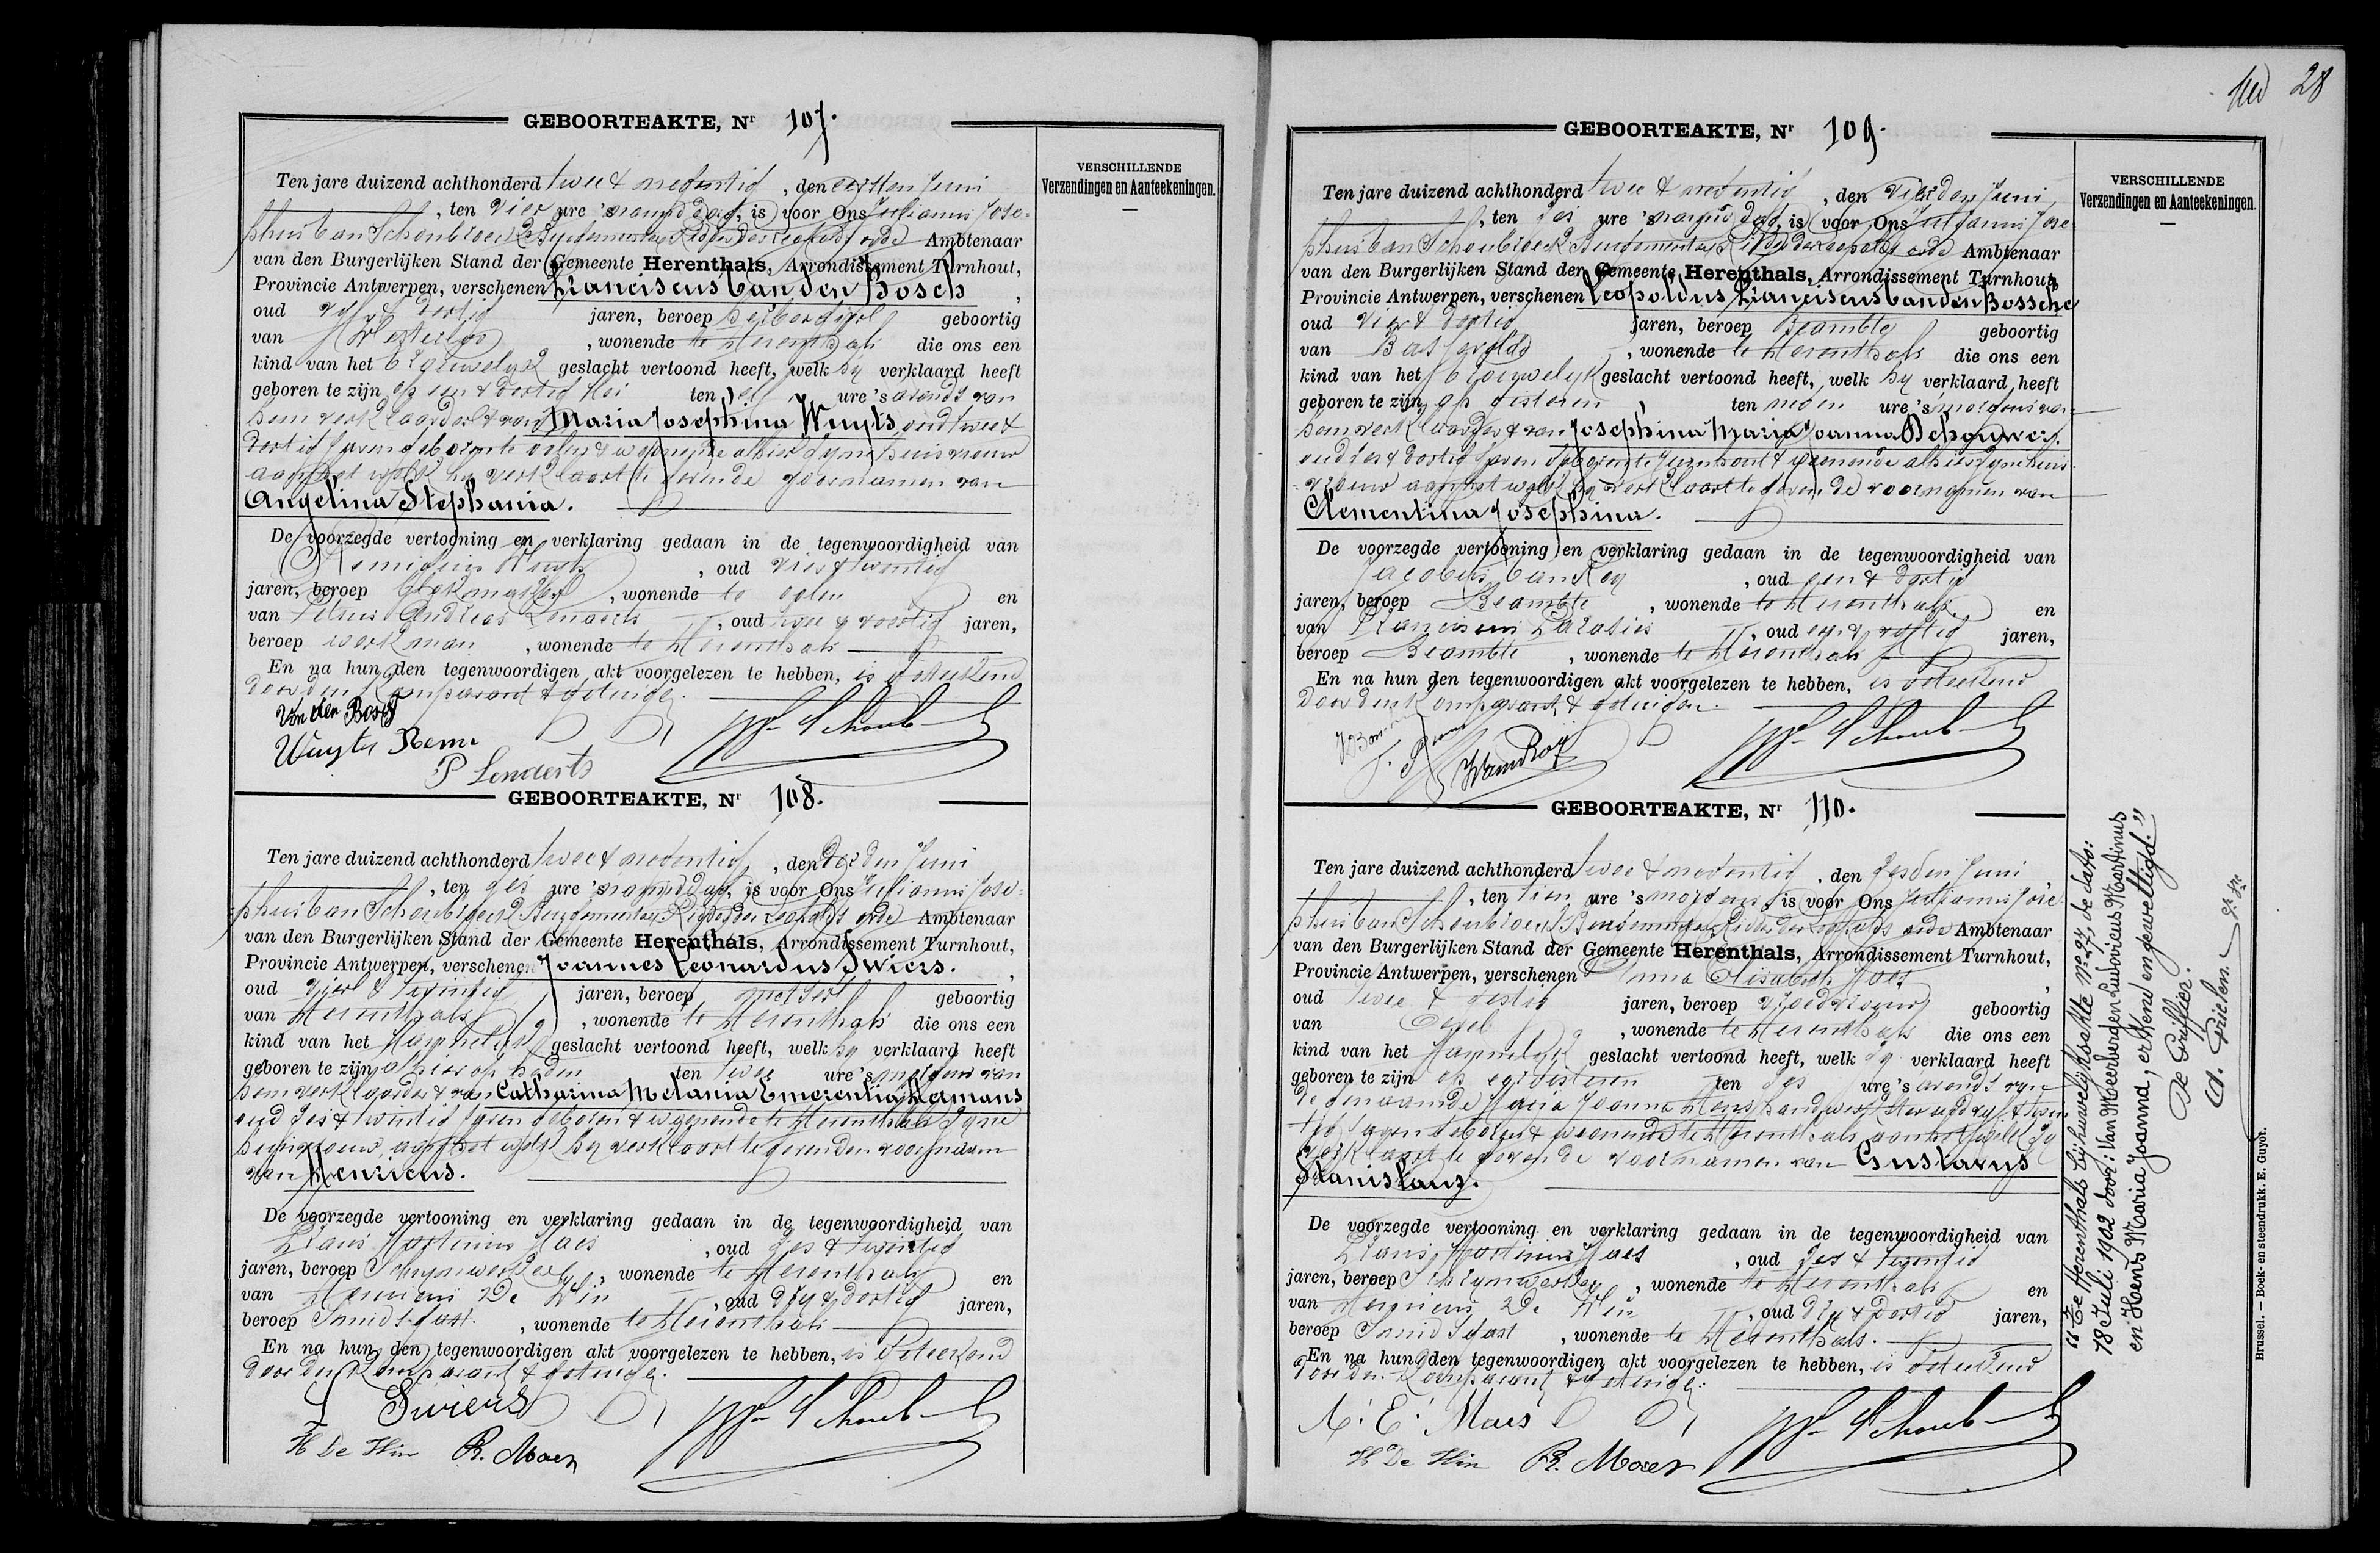 28
GEBOORTEAKTE, Nr 107.
VERSCHILLENDE
Verzendingen en Aanteekeningen.
Ten jare duizend achthonderd twee & negentig, den eersten Juni
, ten vier ure 's namiddag, is voor Ons Julianus Jose-
phus Van Schoubroeck Burgemeester Ridder der Leopolds orde Ambtenaar
van den Burgerlijken Stand der Gemeente Herenthals, Arrondissement Turnhout,
Provincie Antwerpen, verschenen Franciscus Van den Bosch,
oud vijf & dertig jaren, beroep geboortig
van Westerloo, wonende te Herenthals die ons een
kind van het Vrouwelijk geslacht vertoond heeft, welk hy verklaard heeft
geboren te zijn op een & dertig Mei ten elf ure 's avonds van
hem verklaarder & van Maria Josephina Wuyts oud twee &
dertig jaren geboren te Oolen & woonende alhier zyne huisvrouw
aan het welk hy verklaart te gevende voornamen van
Angelina Stephania.
De voorzegde vertooning en verklaring gedaan in de tegenwoordigheid van
Remigius Wuyts, oud vier & twintig
jaren, beroep blokmaker, wonende te Oolen en
van Petrus Andreas Lenaerts, oud twee & veertig jaren,
beroep werkman, wonende te Herenthals
En na hun den tegenwoordigen akt voorgelezen te hebben, is geteekend
door den komparant & getuigen.
Van den Bosch
Wuyts Remi
P Lenaerts
GEBOORTEAKTE, Nr 108.
Ten jare duizend achthonderd twee & negentig, den derden Juni
, ten zes ure 's namiddags, is voor Ons Julianus Jose-
phus Van Schoubroeck Burgemeester Ridder der Leopolds orde Ambtenaar
van den Burgerlijken Stand der Gemeente Herenthals, Arrondissement Turnhout,
Provincie Antwerpen, verschenen Joannes Leonardus Swiers.,
oud & twintig jaren, beroep metser geboortig
van Herenthals, wonende te Herenthals die ons een
kind van het Mannelyk geslacht vertoond heeft, welk hy verklaard heeft
geboren te zijn alhier op heden ten twee ure 's morgens van
hem verklaarder & van Catharina Melania Emerentia Hermans
oud zes & twintig jaren geboren & woonende te Herenthals zyne
huisvrouw aan het welk hy verklaart te geven den voornaam
van Henricus.
De voorzegde vertooning en verklaring gedaan in de tegenwoordigheid van
Frans Martinus Maes, oud zes & twintig
jaren, beroep Schrynwerker, wonende te Herenthals en
van Henricus De Win, oud dry & dertig jaren,
beroep Smidsgast., wonende te Herenthals
En na hun den tegenwoordigen akt voorgelezen te hebben, is geteekend
door den komparant & getuigen.
Swiers
H De Win R. Maes
GEBOORTEAKTE, Nr 109.
VERSCHILLENDE
Verzendingen en Aanteekeningen.
Ten jare duizend achthonderd twee & negentig, den vierden Juni,
, ten zes ure 's namiddag, is voor Ons Julianus Jose-
phus Van Schoubroeck Burgemeester Ridder der Leopolds orde Ambtenaar
van den Burgerlijken Stand der Gemeente Herenthals, Arrondissement Turnhout,
Provincie Antwerpen, verschenen Leopoldus Franciscus Van den Bossche
oud vier & dertig jaren, beroep Beambte geboortig
van Bassevelde, wonende te Herenthals die ons een
kind van het Vrouwelyk geslacht vertoond heeft, welk hy verklaard heeft
geboren te zijn op gisteren ten negen ure 's morgens van
hem verklaarder & van Josephina Maria Joanna Schouwers.
oud zes & dertig jaren geboren te Turnhout & woonende alhier zyne huis-
vrouw aan het welk hy verklaart te geven de voornamen van
Clementina Josephina.
De voorzegde vertooning en verklaring gedaan in de tegenwoordigheid van
Jacobus Van Roy, oud een & dertig
jaren, beroep Beambte, wonende te Herenthals en
van Franciscus, oud een & jaren,
beroep Beambte, wonende te Herenthals
En na hun den tegenwoordigen akt voorgelezen te hebben, is geteekend
door den komparant & getuigen.
J Van Roy
GEBOORTEAKTE, Nr 110.
Ten jare duizend achthonderd twee & negentig, den zesden Juni,
, ten tien ure 's morgens, is voor Ons Julianus Jose-
phus Van Schoubroeck Burgemeester Ridder der Leopolds orde Ambtenaar
van den Burgerlijken Stand der Gemeente Herenthals, Arrondissement Turnhout,
Provincie Antwerpen, verschenen Anna Elisabeth Maes,
oud twee & zestig jaren, beroep vroedvrouw geboortig
van, wonende te Herenthals die ons een
kind van het Mannelyk geslacht vertoond heeft, welk zy verklaard heeft
geboren te zijn op eergisteren ten zes ure 's avonds van
de genaamde Maria Joanna Hens handwerkster oud vyf & twin
tig jaren geboren & woonende te Herenthals aan het welk zy
verklaart te geven de voornamen van Gustavus
Stanislaus.
De voorzegde vertooning en verklaring gedaan in de tegenwoordigheid van
Frans Martinus Maes, oud zes & twintig
jaren, beroep Schrynwerker, wonende te Herenthals en
van Henricus De Win, oud dry & dertig jaren,
beroep Smidsgast, wonende te Herenthals.
En na hun den tegenwoordigen akt voorgelezen te hebben, is geteekend
door den komparant & getuigen.
A. E. Maes
H De Win R. Maes
"Te Herenthals bij huwelijksakte No 27, de dato:
18 Juli 1902 door: Van Meerbergen Ludovicus Martinus
en Hens Maria Joanna, erkend en gewettigd."
De Griffier.
Brussel. — Boek- en steendrukk. E. Guyot.